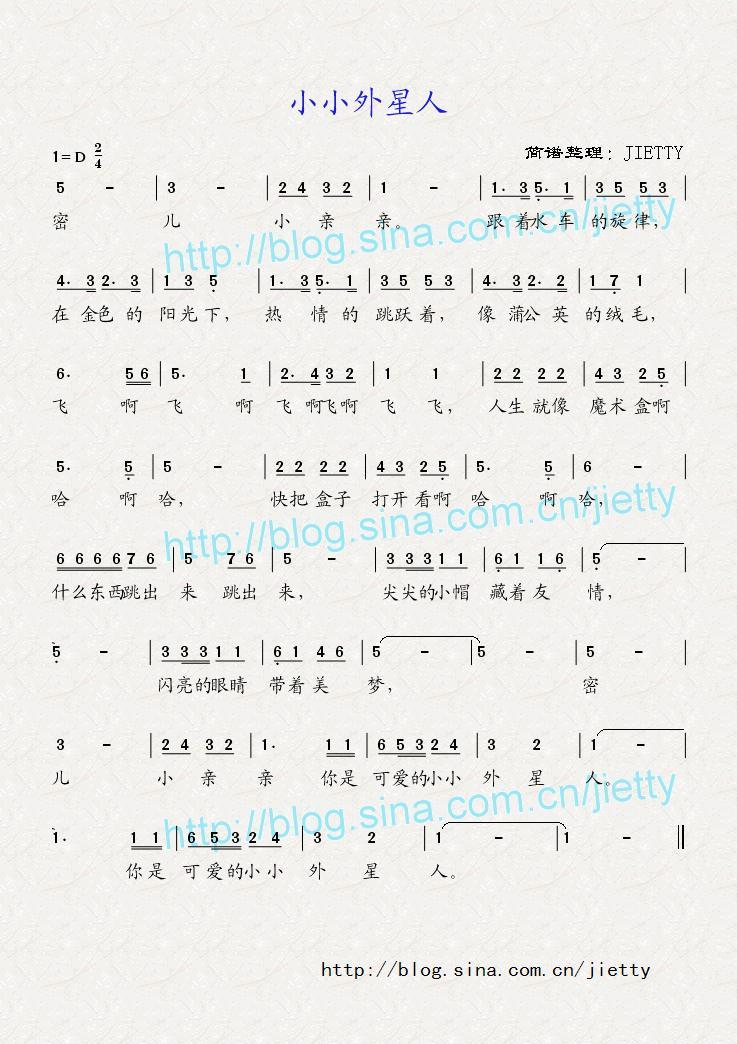 小小外星人
1=D 2/4
简谱整理：JIETTY
5 - | 3 - | 2 4 3 2 | 1 - | 1· 3 5· 1 | 3 5 5 3 |
密 儿 小 亲 亲。 跟着水车 的旋律，
http://blog.sina.com.cn/jietty
4· 3 2· 3 | 1 3 5 | 1· 3 5· 1 | 3 5 5 3 | 4· 3 2· 2 | 1 7 1 |
在金色的 阳光下， 热 情的 跳跃着， 像蒲公英 的绒毛，
6· 5 6 | 5· 1 | 2· 4 3 2 | 1 1 | 2 2 2 2 | 4 3 2 5 |
飞 啊 飞 啊 飞啊飞啊 飞 飞， 人生就像 魔术盒啊
5· 5 | 5 - | 2 2 2 2 | 4 3 2 5 | 5· 5 | 6 - |
哈 啊 哈， 快把盒子 打开看啊 哈 啊 哈，
http://blog.sina.com.cn/jietty
6 6 6 6 7 6 | 5 7 6 | 5 - | 3 3 3 1 1 | 6 1 1 6 | 5 - |
什么东西跳出 来 跳出 来， 尖尖的小帽 藏着友 情，
5 - | 3 3 3 1 1 | 6 1 4 6 | 5 - | 5 - | 5 - |
闪亮的眼睛 带着美 梦， 密
3 - | 2 4 3 2 | 1· 1 1 | 6 5 3 2 4 | 3 2 | 1 - |
儿 小 亲 亲 你是 可爱的小小 外 星 人。
http://blog.sina.com.cn/jietty
1· 1 1 | 6 5 3 2 4 | 3 2 | 1 - | 1 - ||
你是 可爱的小小 外 星 人。
http://blog.sina.com.cn/jietty